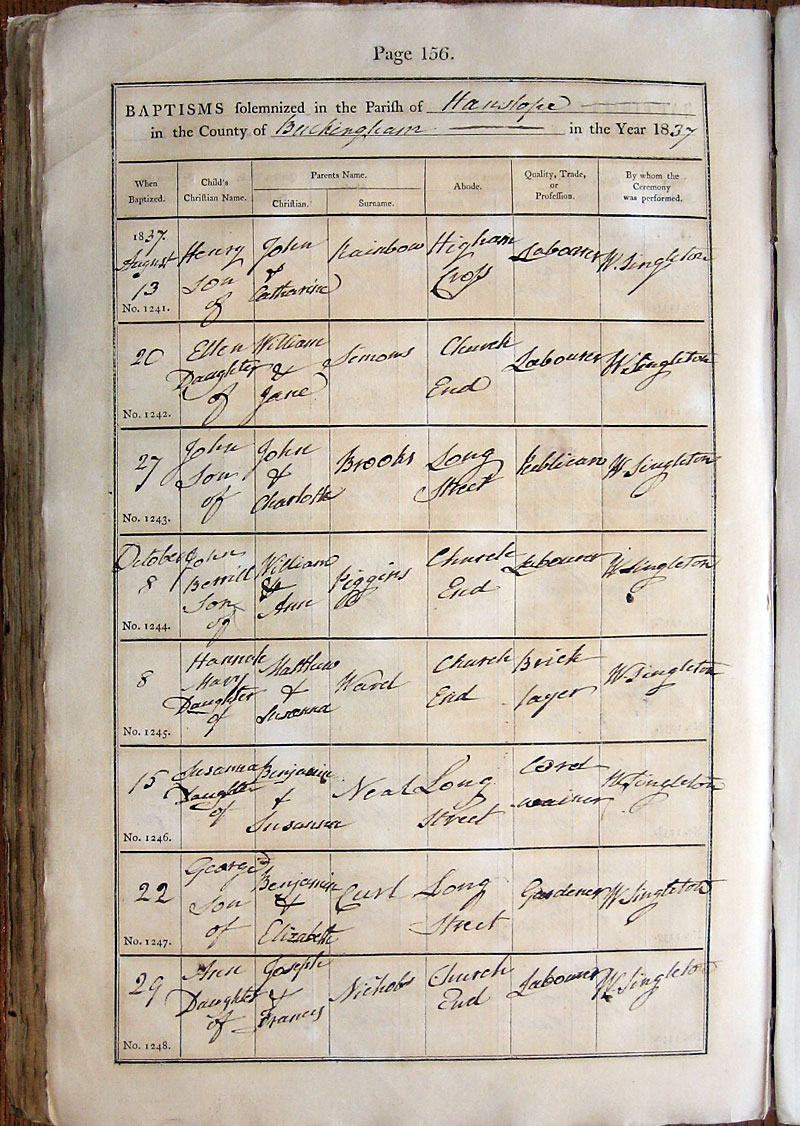 Page 156.
BAPTISMS solemnized in the Parish of Hanslope
in the County of Buckingham in the Year 1837
When Baptized. Child's Christian Name. Parents Name. Christian. Surname. Abode. Quality, Trade, or Profession. By whom the Ceremony was performed.
1837. August 13 No. 1241. Henry Son of John & Catharine Rainbow Higham Cross Labourer W. Singleton
20 No. 1242. Ellen Daughter of William & Jane Simons Church End Labourer W. Singleton
27 No. 1243. John Son of John & Charlotte Brooks Long Street Publican W Singleton
October 8 No. 1244. John Berrill Son of William & Ann Piggins Church End Labourer W. Singleton
8 No. 1245. Hannah Mary Daughter of Matthew & Susanna Ward Church End Brick layer W. Singleton
15 No. 1246. Susannah Daughter of Benjamin & Susanna Neal Long Street Cord wainer W Singleton
22 No. 1247. George Son of Benjamin & Elizabeth Curl Long Street Gardener W Singleton
29 No. 1248. Ann Daughter of Joseph & Francis Nichols Church End Labourer W. Singleton